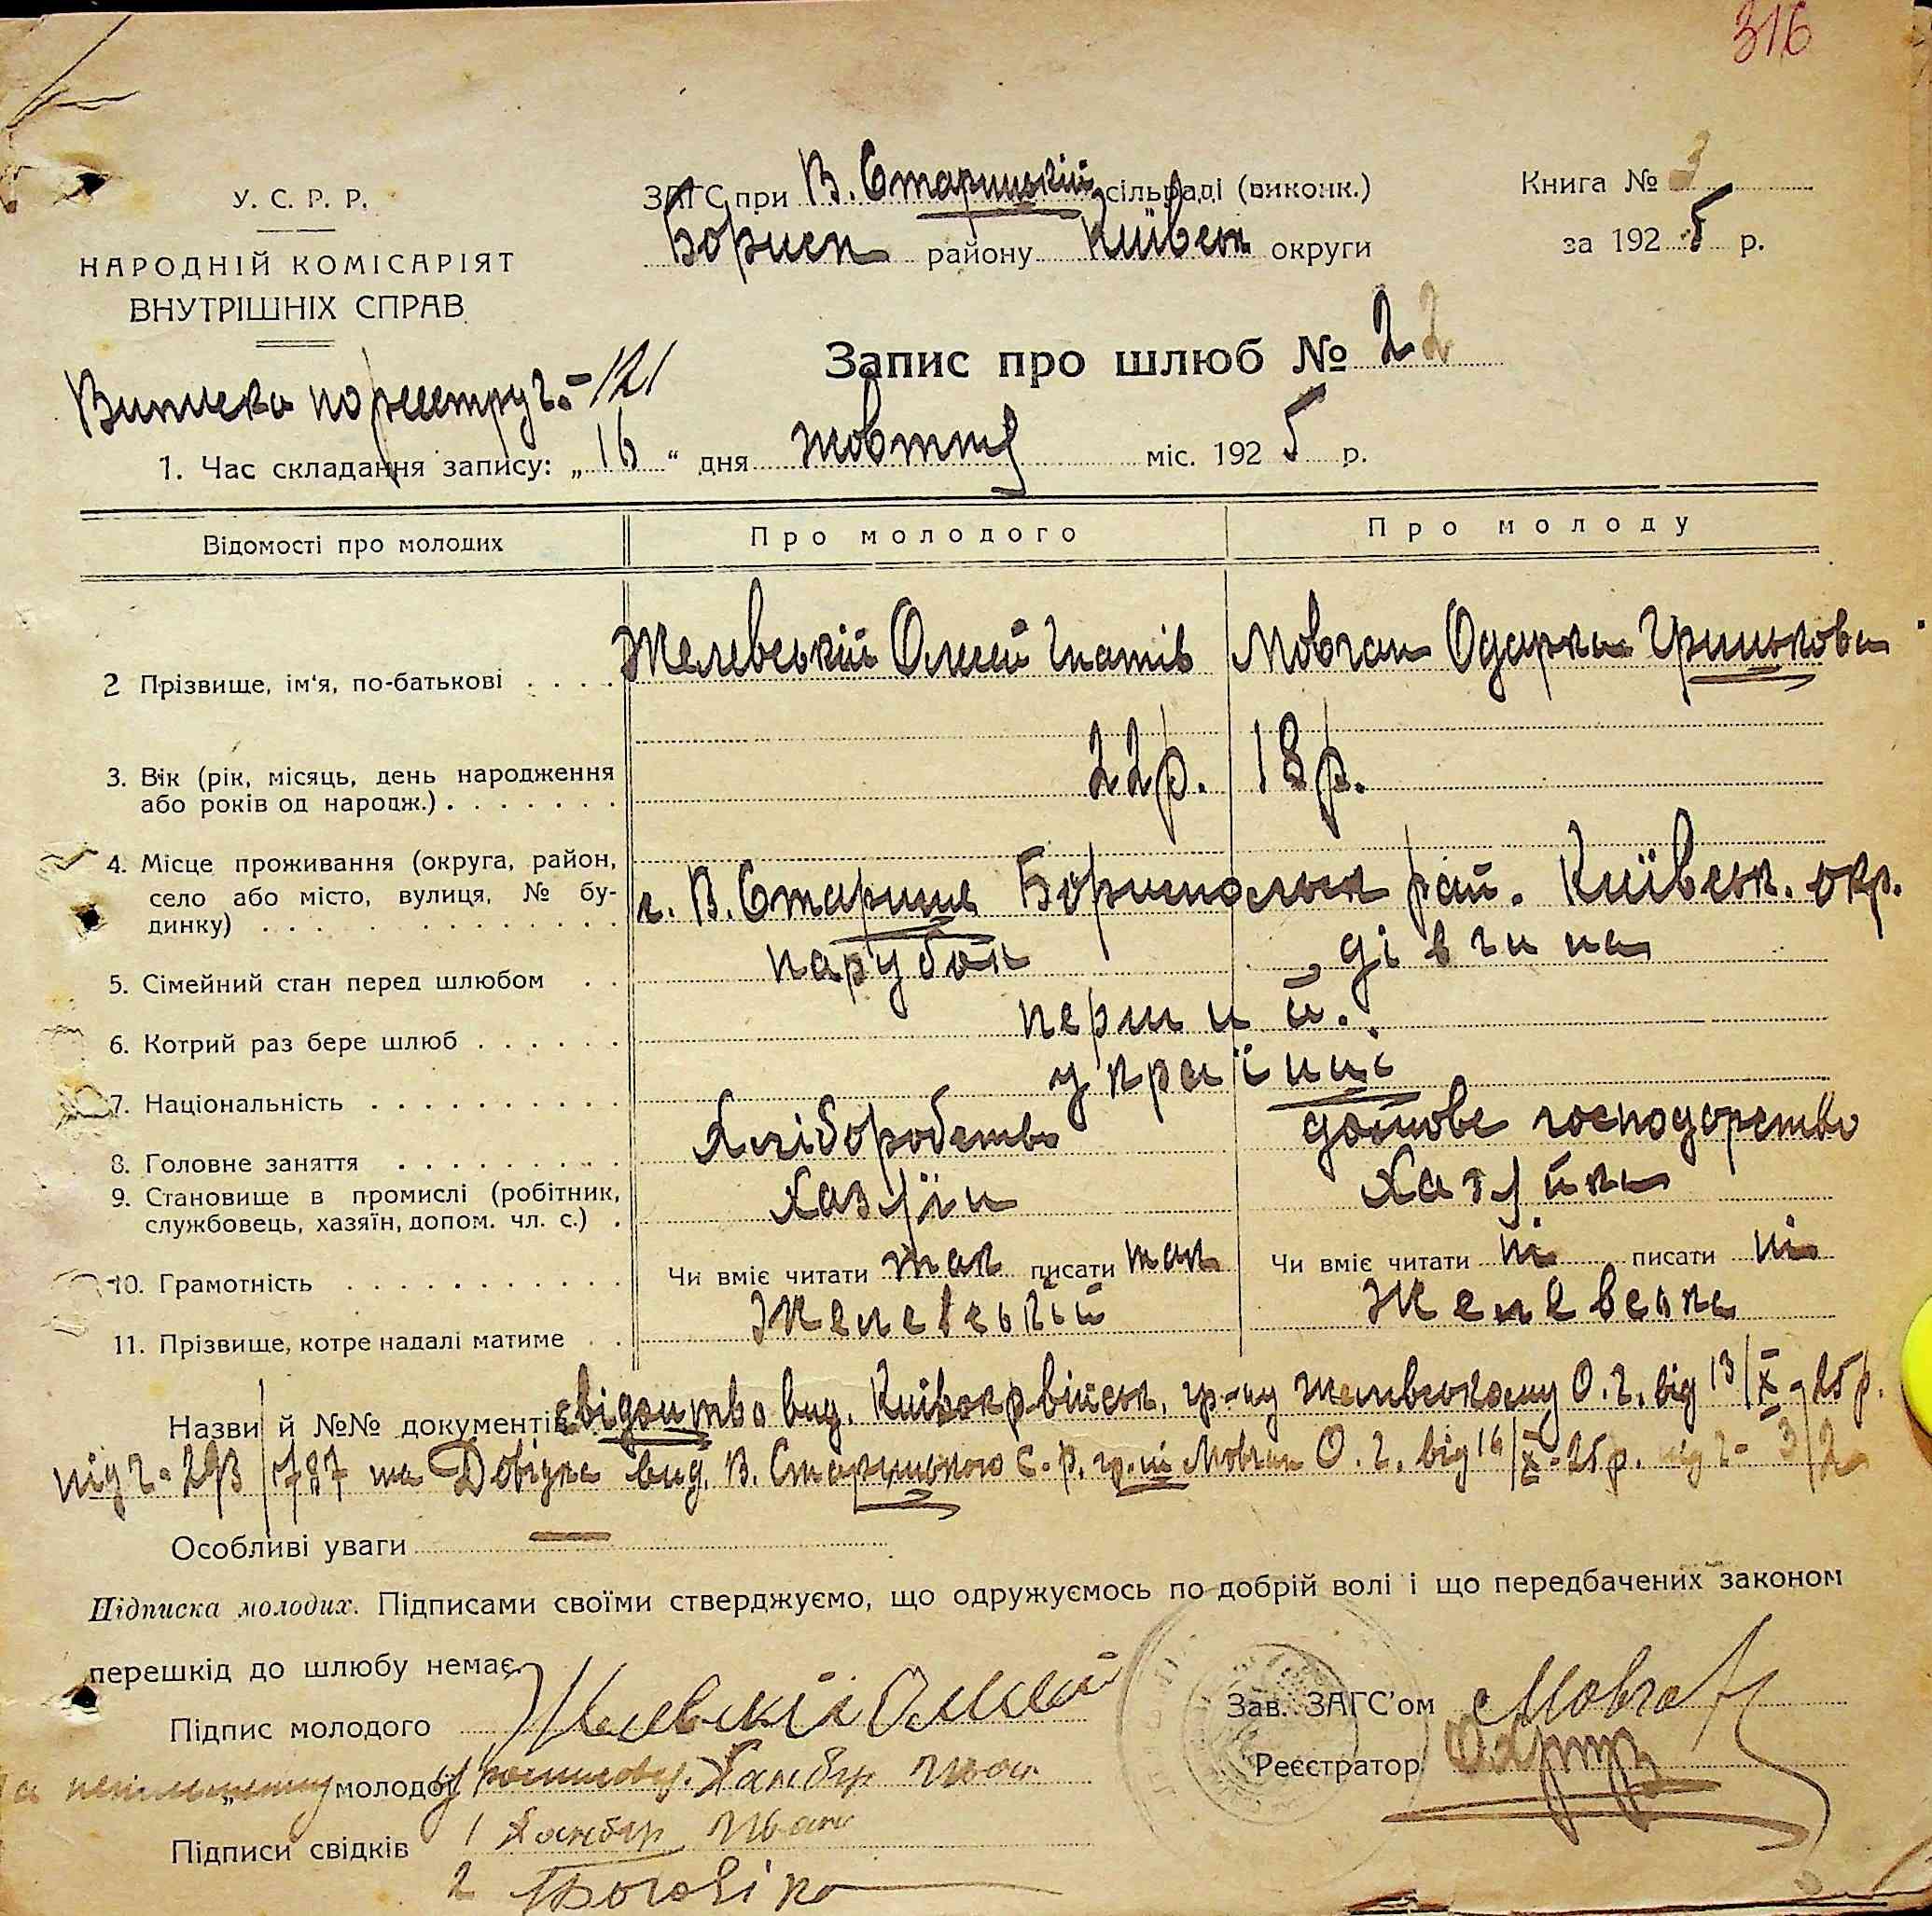 316
У. С. Р. Р.
НАРОДНІЙ КОМІСАРІЯТ
ВНУТРІШНІХ СПРАВ
ЗАГС при В. Старицькій сільраді (виконк.)
Борисп район у Київськ округи
Книга № 3
за 1925 р.
Запис про шлюб № 22
Виписка по реєстру ч. - 121
1. Час складання запису: „16“ дня жовтня міс. 1925 р.
Відомості про молодих
Про молодого
Про молоду
2 Прізвище, ім'я, по-батькові
Желевський Олексій Гнатів
Мовчан Одарка Грицькова
3. Вік (рік, місяць, день народження або років од народж.)
22р.
18р.
4. Місце проживання (округа, район, село або місто, вулиця, № будинку)
с. В. Стариця Бориспольськ рай. Київськ. окр.
5. Сімейний стан перед шлюбом
парубок
дівчина
6. Котрий раз бере шлюб
перший.
7. Національність
українці
8. Головне заняття
Хліборобство
домове господарство
9. Становище в промислі (робітник, службовець, хазяїн, допом. чл. с.)
Хазяїн
Хазяйка
10. Грамотність
Чи вміє читати так писати так
Чи вміє читати ні писати ні
11. Прізвище, котре надалі матиме
Желевський
Желевська
Назви й №№ документів свідоцтво вид. Київокрвійськ. гр-ну Желевському О. Г. від 13/X-25р.
під ч- 293/1787 та Довідка вид. В. Старицького с. р. гр-ці Мовчан О. Г. від 16/X-25р. під ч- 3/2
Особливі уваги —
Підписка молодих. Підписами своїми стверджуємо, що одружуємось по добрій волі і що передбачених законом
перешкід до шлюбу немає.
Підпис молодого Желевскій Олексій
„ молодої
за неписьменну розписався Іван
Підписи свідків 1 Іван
2
Зав. ЗАГС'ом Мовчан
Реєстратор